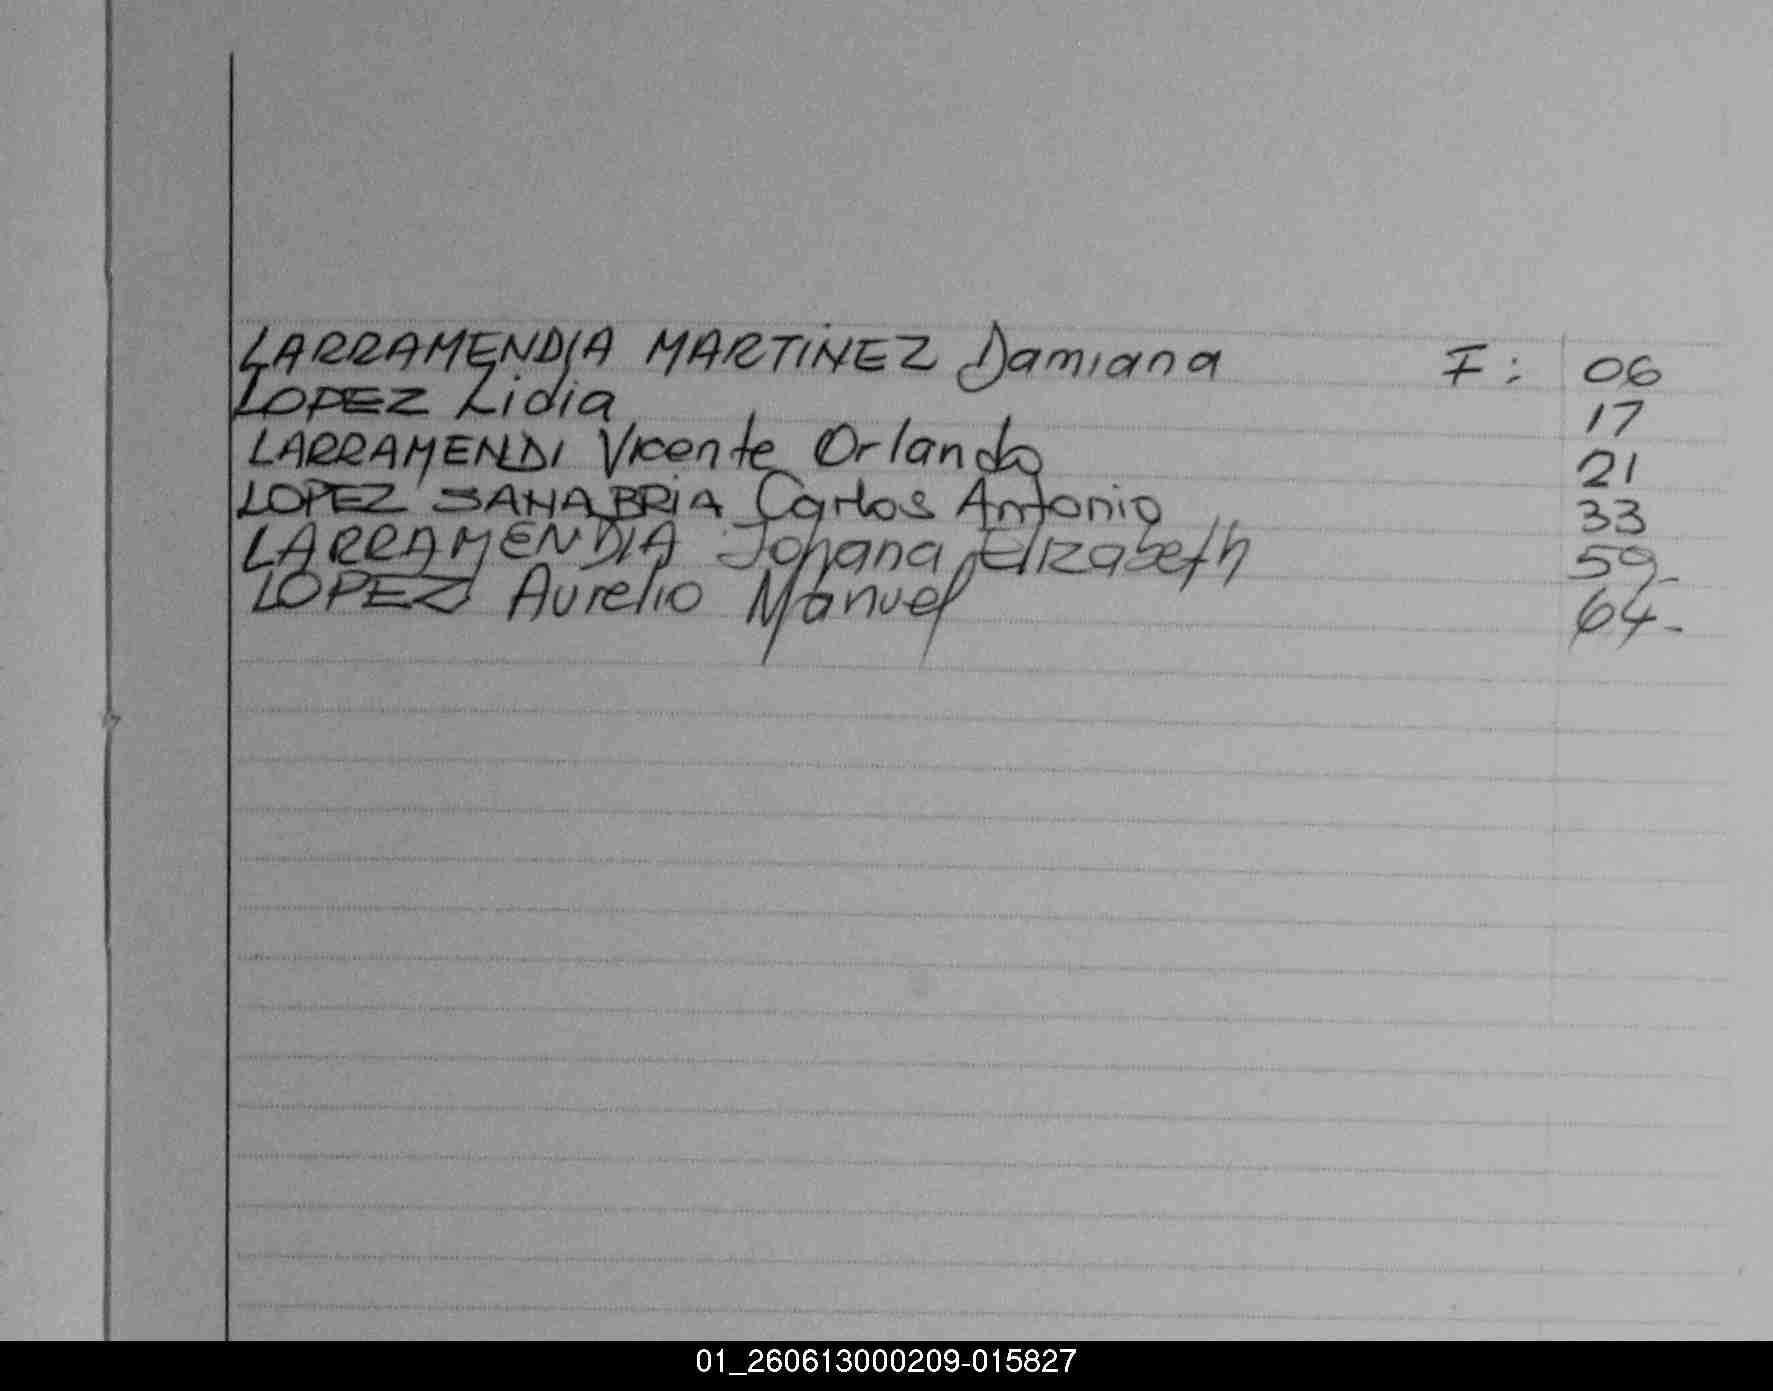 LARRAMENDIA MARTiNEZ Damiana F: 06
LOPEZ Lidia 17
LARRAMENDI Vicente Orlando 21
LOPEZ SANABRiA Carlos Antonio 33
LARRAMENDIA Johana Elizabeth 59-
LOPEZ Aurelio Manuel 64-
01_260613000209-015827